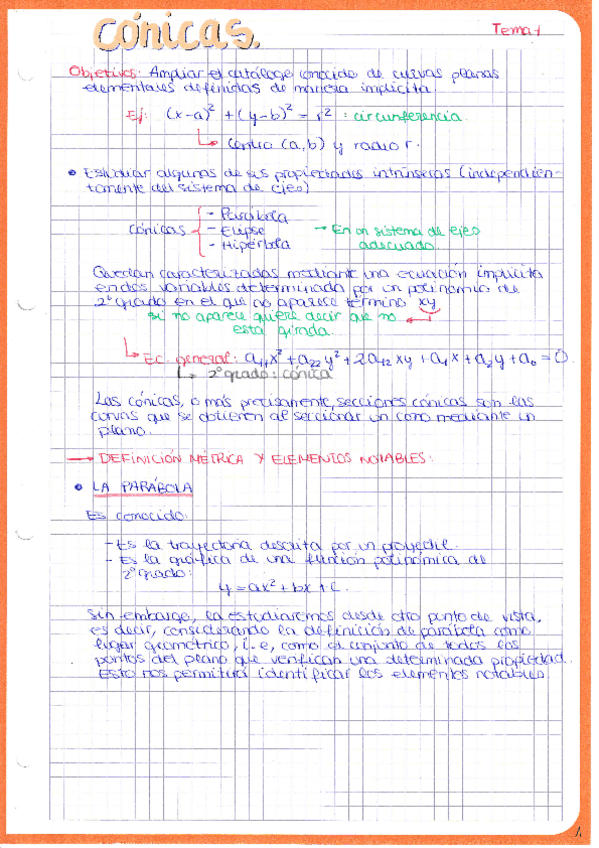 Cónicas.
Tema 1
Objetivos: Ampliar el catálogo conocido de curvas planas
elementales definidas de manera implícita.
Ej: (x-a)² + (y-b)² = r² : circunferencia.
Centro (a,b) y radio r.
• Estudiar algunas de sus propiedades intrínsecas (independien-
temente del sistema de ejes)
Cónicas
- Parábola
- Elipse
- Hipérbola
→ En un sistema de ejes
adecuado.
Quedan caracterizadas mediante una ecuación implícita
en dos variables determinada por un polinomio de
2º grado en el que no aparece término xy
si no aparece quiere decir que no
está girada.
Ec. general: a₁₁x² + a₂₂y² + 2a₁₂xy + a₁x + a₂y + a₀ = 0.
2º grado: cónica
Las cónicas, o más precisamente, secciones cónicas son las
curvas que se obtienen al seccionar un cono mediante un
plano.
→ DEFINICIÓN MÉTRICA Y ELEMENTOS NOTABLES:
• LA PARÁBOLA
Es conocido:
- Es la trayectoria descrita por un proyectil.
- Es la gráfica de una función polinómica de
2º grado:
y = ax² + bx + c.
Sin embargo, la estudiaremos desde otro punto de vista,
es decir, considerando la definición de parábola como
lugar geométrico, i.e, como el conjunto de todos los
puntos del plano que verifican una determinada propiedad.
Esto nos permitirá identificar los elementos notables
1